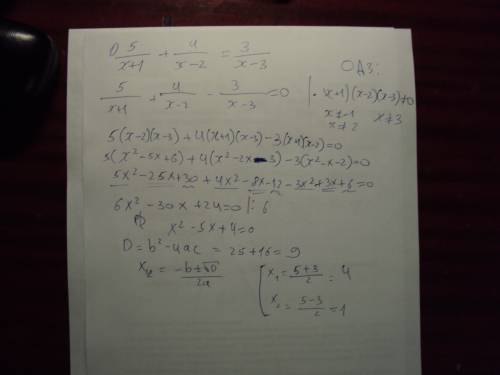 1) 5/(x+1) + 4/(x-2) = 3/(x-3)
ОДЗ:
5/(x+1) + 4/(x-2) - 3/(x-3) = 0 | · (x+1)(x-2)(x-3)≠0
x≠-1
x≠2 x≠3
5(x-2)(x-3)+4(x+1)(x-3)-3(x+1)(x-2)=0
5(x²-5x+6)+4(x²-2x-3)-3(x²-x-2)=0
5x²-25x+30+4x²-8x-12-3x²+3x+6=0
6x²-30x+24=0 |: 6
x²-5x+4=0
D=b²-4ac = 25+16=9
x₁,₂ = (-b±√D)/2a
x₁ = (5+3)/2 = 4
x₂ = (5-3)/2 = 1